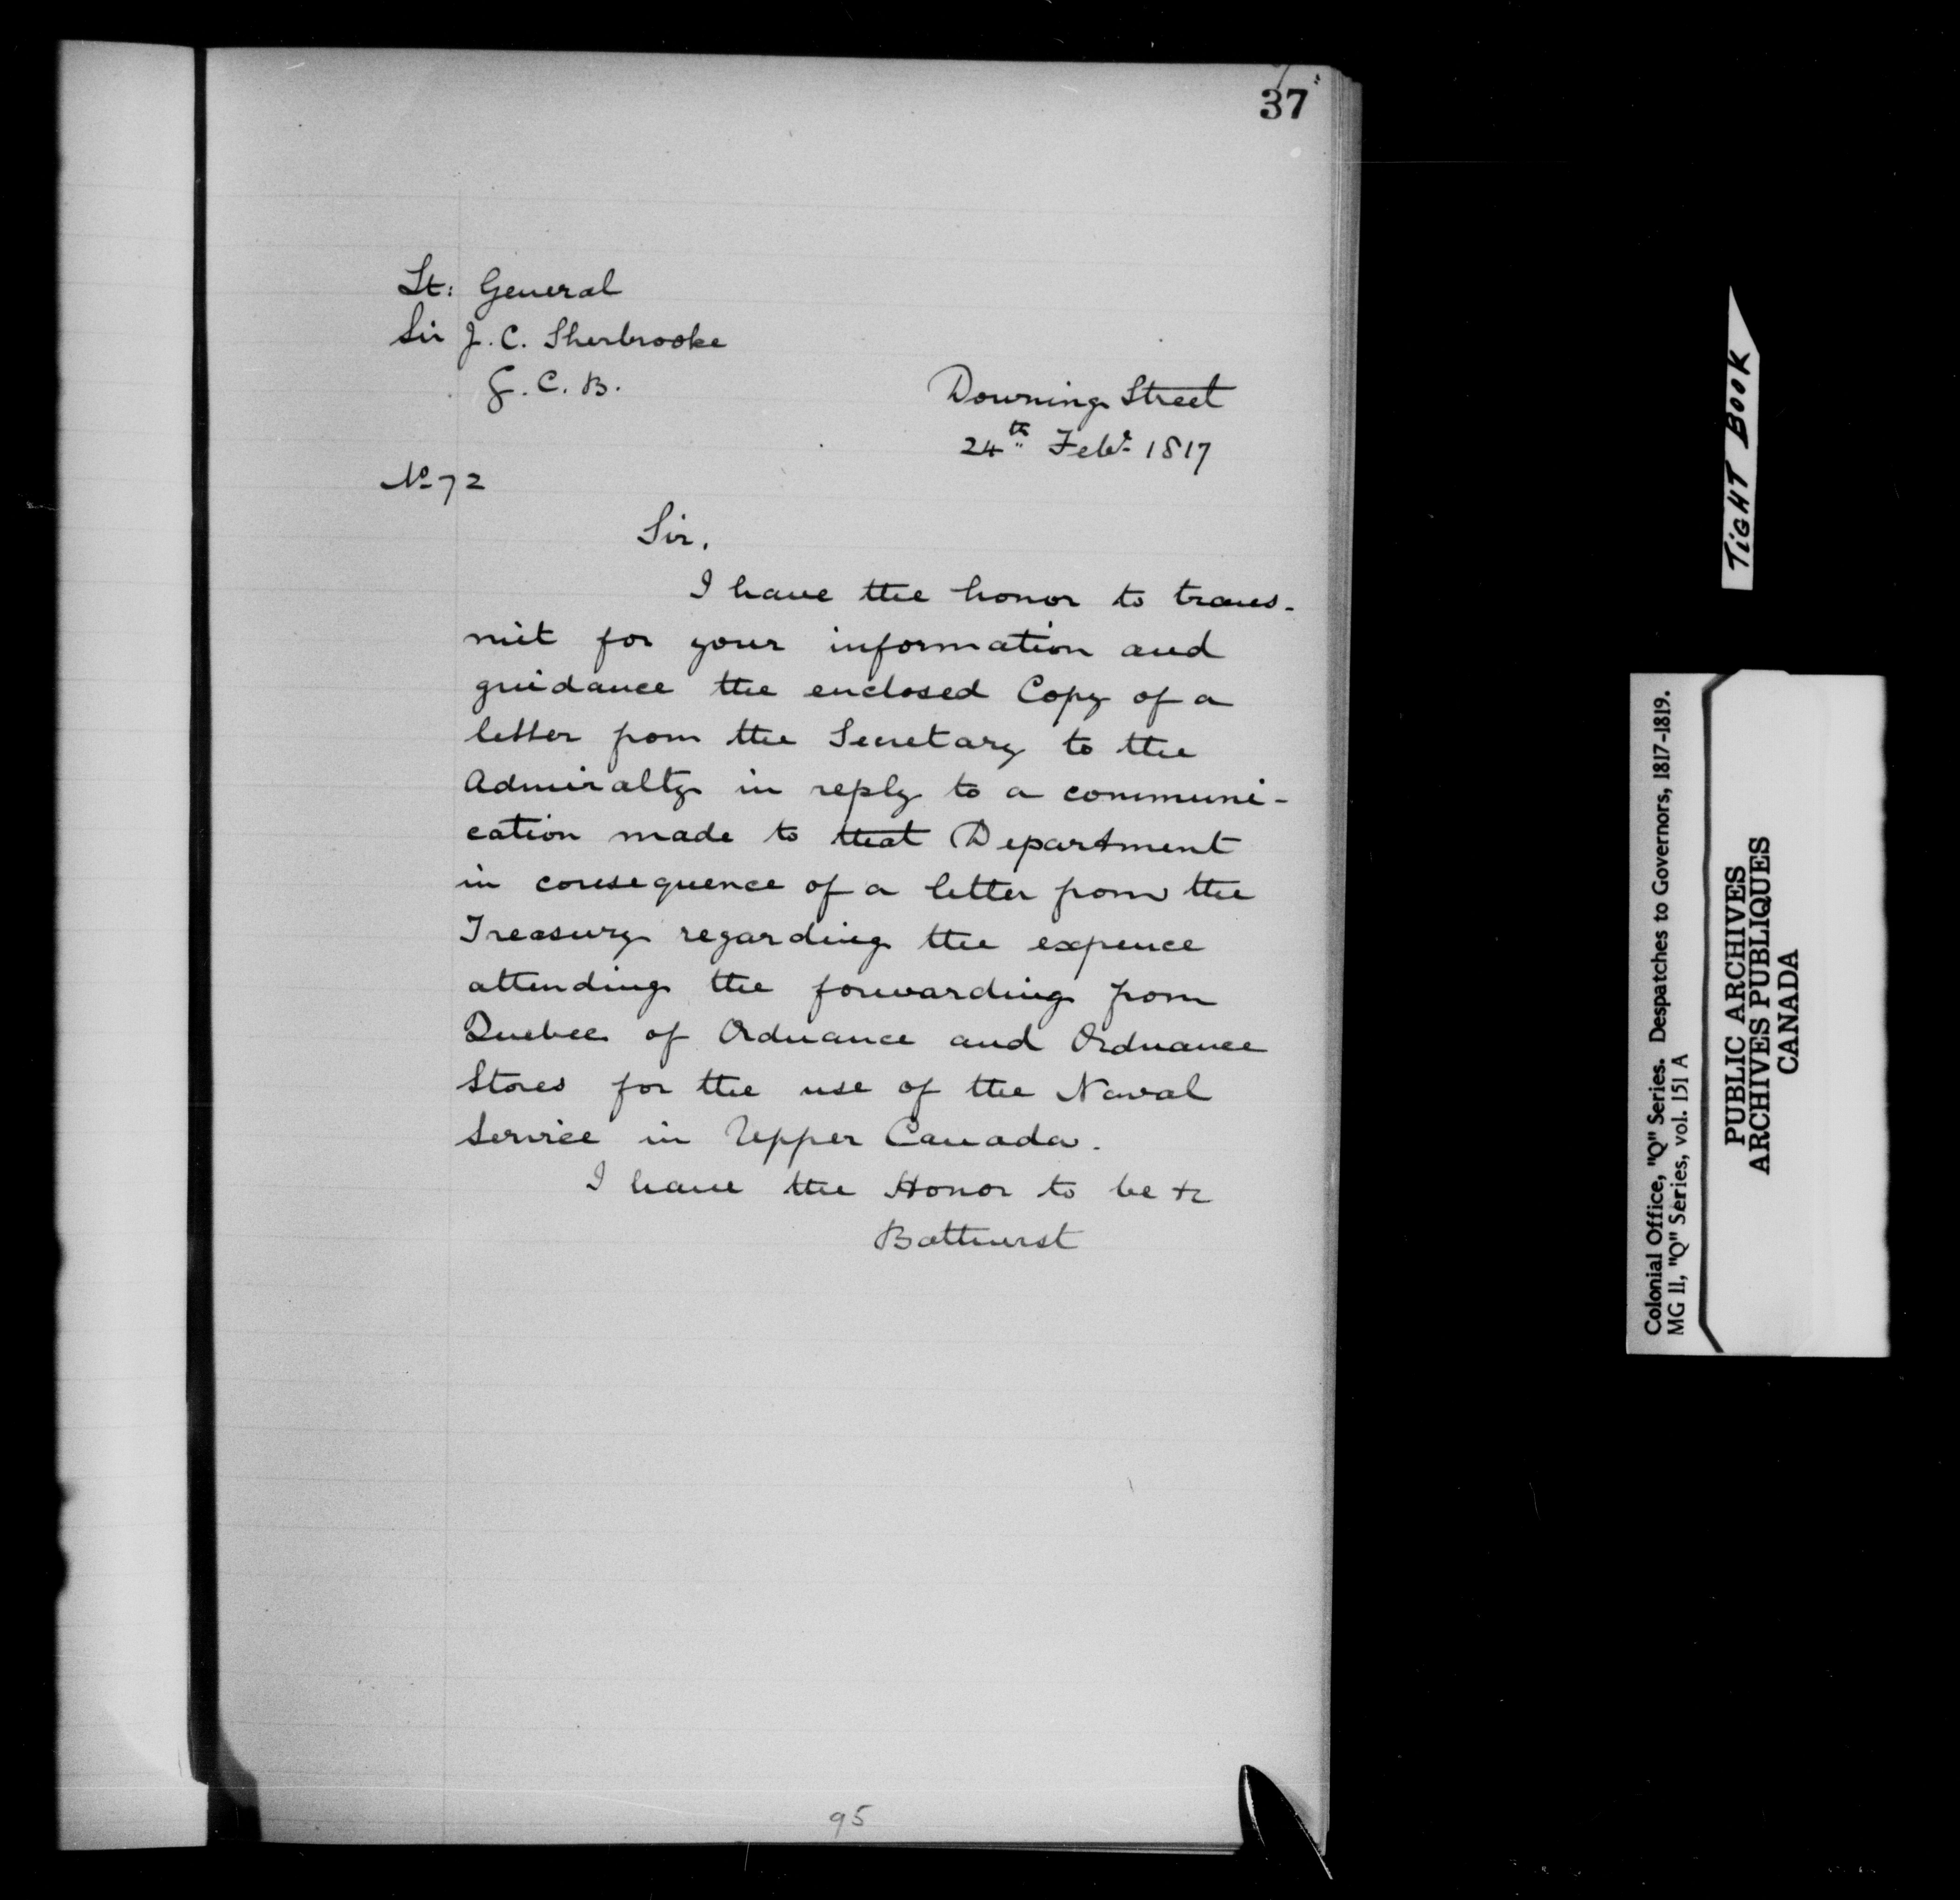 37
Lt: General
Sir J. C. Sherbrooke
G. C. B.
Downing Street
24th Feby 1817
No 72
Sir,
I have the honor to trans-
mit for your information and
guidance the enclosed Copy of a
letter from the Secretary to the
Admiralty in reply to a communi-
cation made to that Department
in consequence of a letter from the
Treasury regarding the expence
attending the forwarding from
Quebec of Ordnance and Ordnance
Stores for the use of the Naval
Service in Upper Canada.
I have the Honor to be &c
Bathurst
95
TIGHT BOOK
Colonial Office, "Q" Series. Despatches to Governors, 1817-1819.
MG 11, "Q" Series, vol. 151 A
PUBLIC ARCHIVES
ARCHIVES PUBLIQUES
CANADA